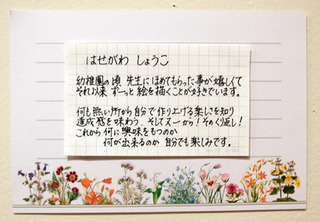 はせがわ しょうこ
幼稚園の頃 先生にほめてもらった事が嬉しくて
それ以来 ずーっと 絵を描くことが好きでいます。
何も無い所から自分で作り上げる楽しさを知り
達成感を味わう、そしてスーから！そのくり返し！
これから何に興味をもつのか
何が出来るのか 自分でも楽しみです。